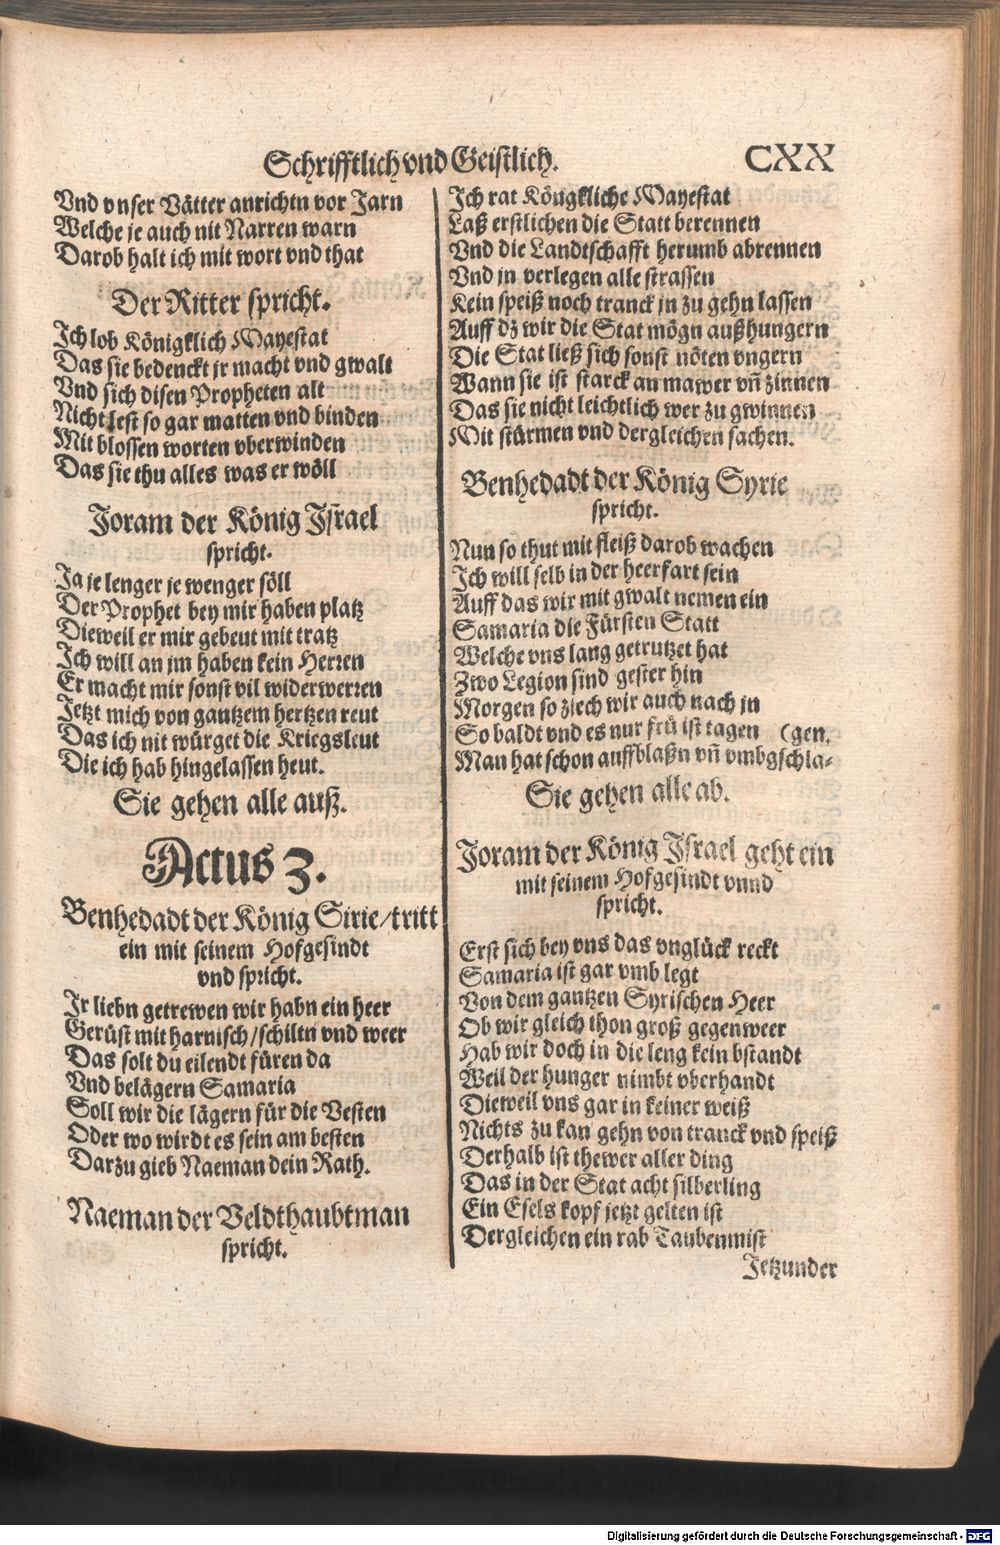 Schrifftlich vnd Geistlich. CXX
Vnd vnser Vätter anrichtn vor Jarn
Welche je auch nit Narren warn
Darob halt ich mit wort vnd that
Der Ritter spricht.
Ich lob Königklich Mayestat
Das sie bedenckt jr macht vnd gwalt
Vnd sich disen Propheten alt
Nicht lest so gar matten vnd binden
Mit blossen worten vberwinden
Das sie thu alles was er wöll
Joram der König Jsrael
spricht.
Ja je lenger je wenger söll
Der Prophet bey mir haben platz
Dieweil er mir gebeut mit tratz
Ich will an jm haben kein Herren
Er macht mir sonst vil widerwerren
Jetzt mich von gantzem hertzen reut
Das ich nit würget die Kriegsleut
Die ich hab hingelassen heut.
Sie gehen alle auß.
Actus 3.
Benhedadt der König Sirie/tritt
ein mit seinem Hofgesindt
vnd spricht.
Ir liebn getrewen wir habn ein heer
Gerüst mit harnisch/schiltn vnd weer
Das solt du eilendt füren da
Vnd belägern Samaria
Soll wir die lägern für die Vesten
Oder wo wirdt es sein am besten
Darzu gieb Naeman dein Rath.
Naeman der Veldthaubtman
spricht.
Ich rat Köngkliche Mayestat
Laß erstlichen die Statt berennen
Vnd die Landtschafft herumb abrennen
Vnd jn verlegen alle strassen
Kein speiß noch tranck jn zu gehn lassen
Auff dz wir die Stat mögn außhungern
Die Stat ließ sich sonst nöten vngern
Wann sie ist starck an mawer vñ zinnen
Das sie nicht leichtlich wer zu gwinnen
Mit stürmen vnd dergleichen sachen.
Benhedadt der König Syrie
spricht.
Nun so thut mit fleiß darob wachen
Ich will selb in der heerfart sein
Auff das wir mit gwalt nemen ein
Samaria die Fürsten Statt
Welche vns lang getrutzet hat
Zwo Legion sind gester hin
Morgen so ziech wir auch nach jn
So baldt vnd es nur frü ist tagen (gen.
Man hat schon auffblaßn vñ vmbgschla-
Sie gehen alle ab.
Joram der König Jsrael geht ein
mit seinem Hofgesindt vnnd
spricht.
Erst sich bey vns das vnglück reckt
Samaria ist gar vmb legt
Von dem gantzen Syrischen Heer
Ob wir gleich thon groß gegenweer
Hab wir doch in die leng kein bstandt
Weil der hunger nimbt vberhandt
Dieweil vns gar in keiner weiß
Nichts zu kan gehn von tranck vnd speiß
Derhalb ist thewer aller ding
Das in der Stat acht silberling
Ein Esels kopf jetzt gelten ist
Dergleichen ein rab Taubenmist
Jetzunder
Digitalisierung gefördert durch die Deutsche Forschungsgemeinschaft - DFG